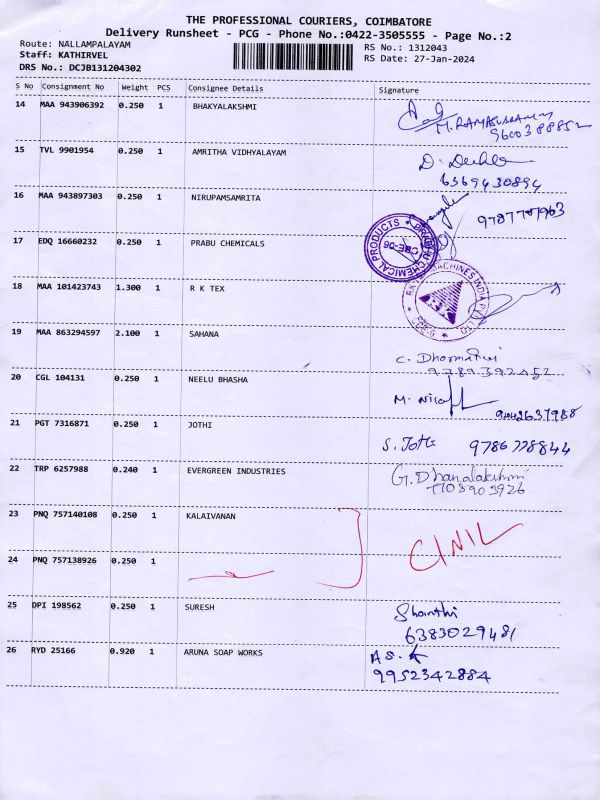 THE PROFESSIONAL COURIERS, COIMBATORE
Delivery Runsheet - PCG - Phone No.:0422-3505555 - Page No.:2
Route: NALLAMPALAYAM
RS No.: 1312043
Staff: KATHIRVEL
RS Date: 27-Jan-2024
DRS No.: DCJB131204302
S No Consignment No Weight PCS Consignee Details Signature
14 MAA 943906392 0.250 1 BHAKYALAKSHMI
9600388852
15 TVL 9901954 0.250 1 AMRITHA VIDHYALAYAM
6369430894
16 MAA 943897303 0.250 1 NIRUPAMSAMRITA
17 EDQ 16660232 0.250 1 PRABU CHEMICALS
PRABHU CHEMICAL PRODUCTS
CBE-06
18 MAA 101423743 1.300 1 R K TEX
MACHINES INDIA
19 MAA 863294597 2.100 1 SAHANA
20 CGL 104131 0.250 1 NEELU BHASHA
21 PGT 7316871 0.250 1 JOTHI
S. Jothi 9786778844
22 TRP 6257988 0.240 1 EVERGREEN INDUSTRIES
G. Dhanalakshmi
7708903926
23 PNQ 757140108 0.250 1 KALAIVANAN
24 PNQ 757138926 0.250 1
25 DPI 198562 0.250 1 SURESH
Shanthi
6383029481
26 RYD 25166 0.920 1 ARUNA SOAP WORKS
9952342884